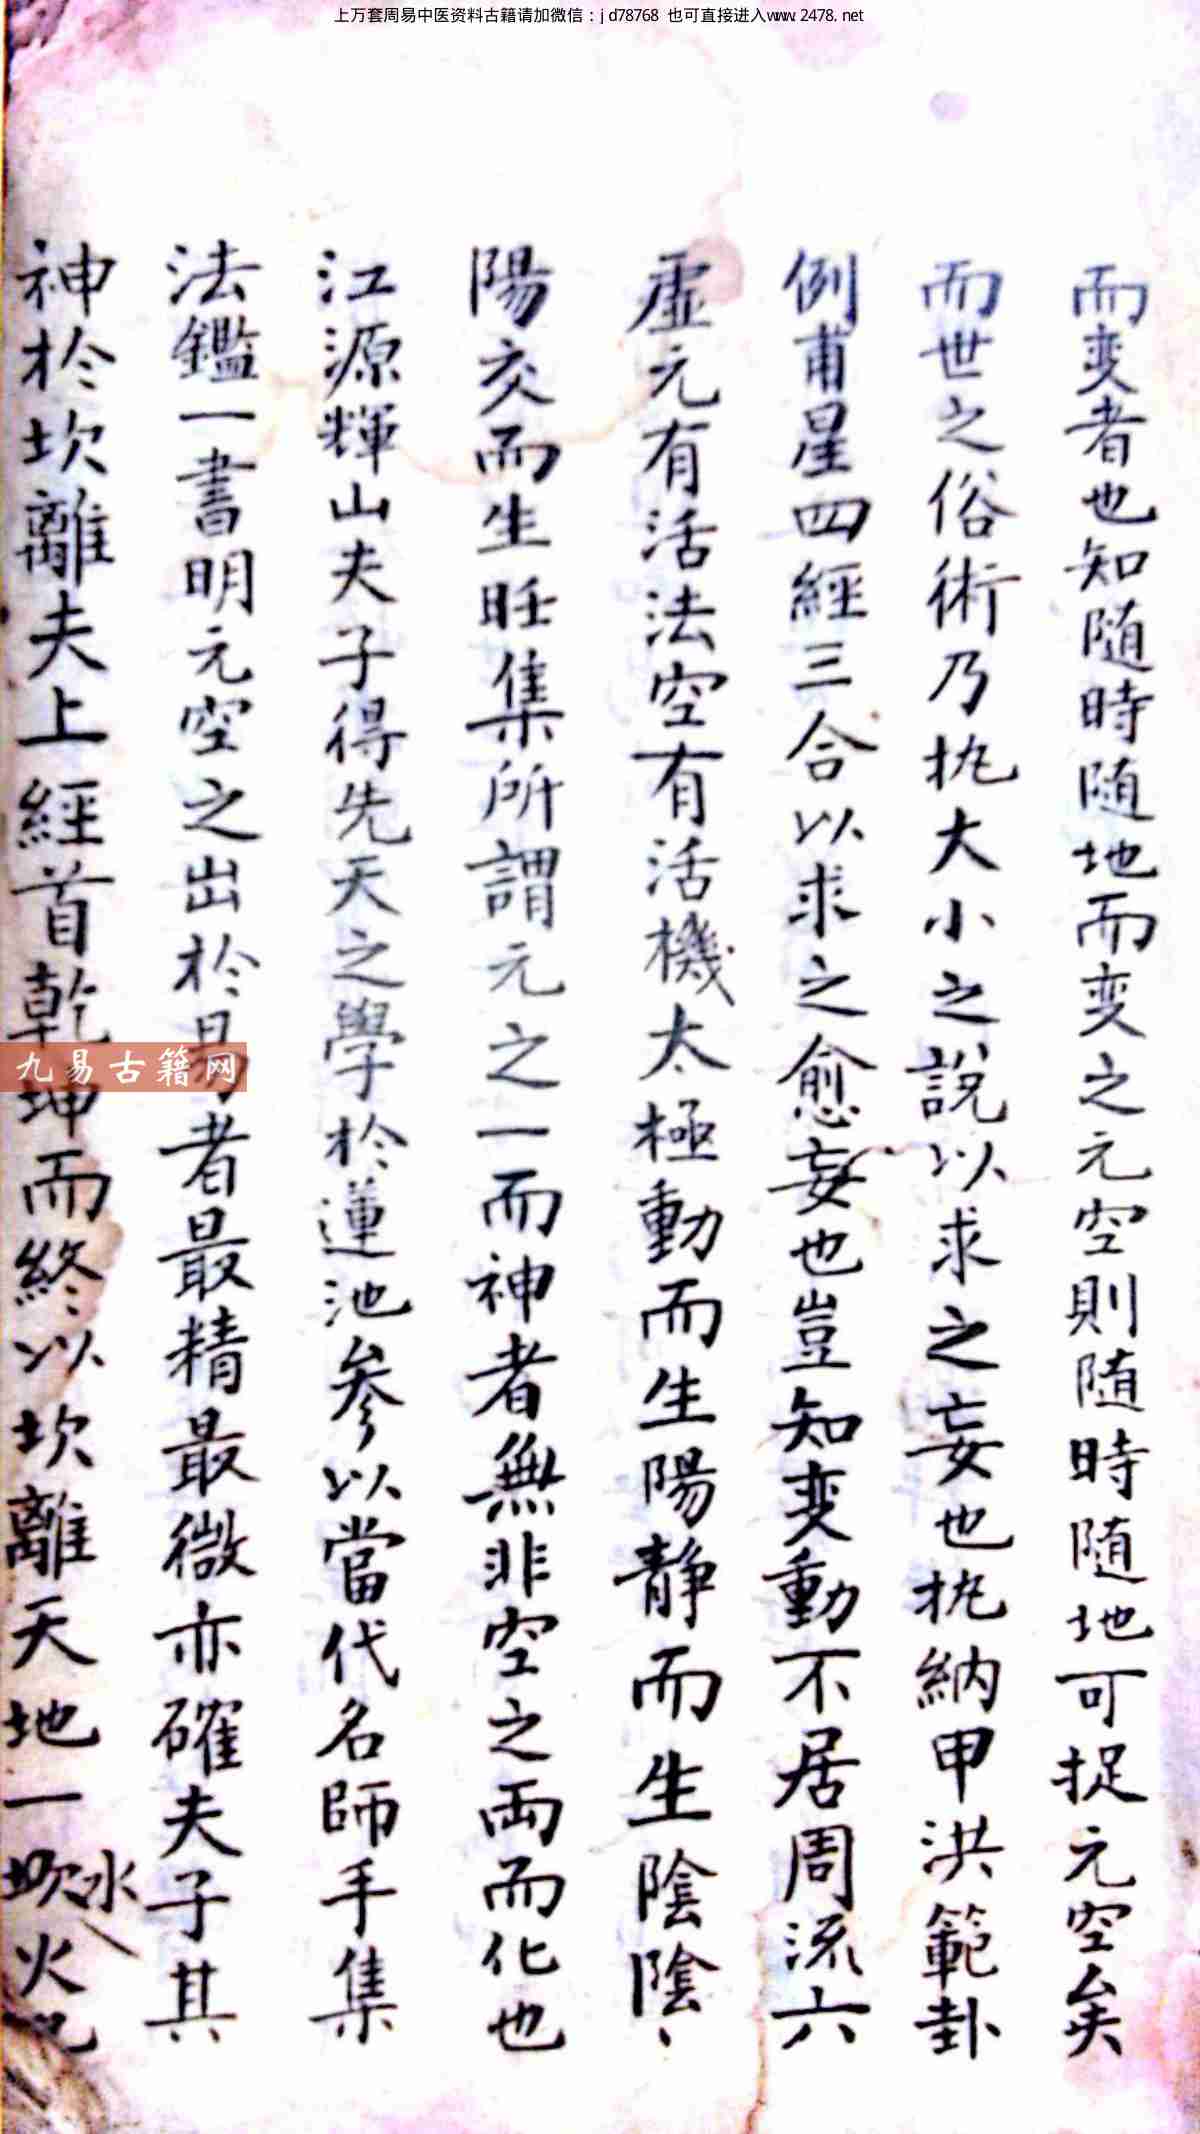 上万套周易中医资料古籍请加微信：jd78768 也可直接进入www.2478.net
而变者也知随時随地而变之元空則随時随地可捉元空矣
而世之俗術乃执大小之說以求之妄也执納甲洪範卦
例甫星四經三合以求之愈妄也豈知变動不居周流六
虛元有活法空有活機太極動而生陽静而生陰陰、
陽交而生旺集所謂元之一而神者無非空之両而化也
江源輝山夫子得先天之學於蓮池参以當代名師手集
法鑑一書明元空之出於易者最精最微亦確夫子其
神於坎離夫上經首乾坤而終以坎離天地一坎水火
九易古籍网